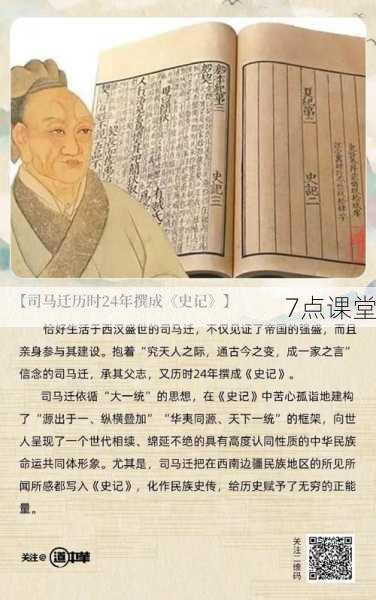 夏紀第二
史記二
史記三
【司马迁历时24年撰成《史记》】
7点课堂
恰好生活于西汉盛世的司马迁，不仅见证了帝国的强盛，而且
亲身参与其建设。抱着“究天人之际，通古今之变，成一家之言”
信念的司马迁，承其父志，又历时24年撰成《史记》。
司马迁依循“大一统”的思想，在《史记》中苦心孤诣地建构
了“源出于一、纵横叠加”“华夷同源、天下一统”的框架，向世
人呈现了一个世代相续、绵延不绝的具有高度认同性质的中华民族
命运共同体形象。尤其是，司马迁把在西南边疆民族地区的所见所
闻所感都写入《史记》，化作民族史传，给历史赋予了无穷的正能
量。
关注@道中华
关注二维码